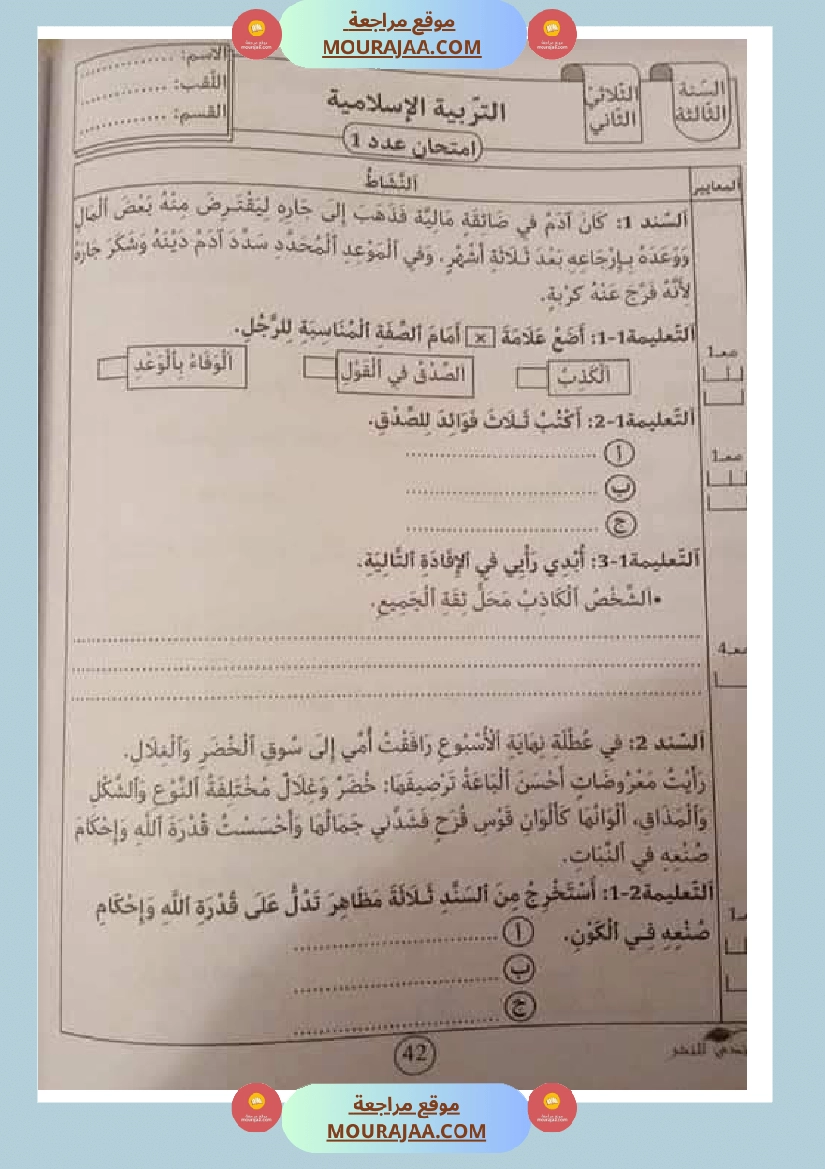 موقع مراجعة
MOURAJAA.COM
الاسم: ..............
اللّقب: ..............
القسم: ..............
التّربية الإسلامية
امتحان عدد 1
الثّلاثيّ
الثّاني
السّنة
الثّالثة
المعايير
اَلنَّشَاطُ
اَلسّند 1: كَانَ آدَمُ في ضَائقَة مَاليَّة فَذَهَبَ إلَى جَارِهِ لِيَقْتَـرِضَ مِنْهُ بَعْضَ ٱلْمَالِ
وَوَعَدَهُ بِـإِرْجَاعِهِ بَعْدَ ثَـلَاثَةِ أَشْهُرٍ. وَفي ٱلْمَوْعِدِ ٱلْمُحَدَّدِ سَدَّدَ آدَمُ دَيْنَهُ وَشَكَرَ جَارَهُ
لأَنَّهُ فَرَّجَ عَنْهُ كرْبَةٍ.
اَلتّعليمة1-1: أَضَعُ عَلَامَةَ × أَمَامَ ٱلصِّفَةِ ٱلْمُنَاسِبَةِ لِلرَّجُلِ.
معـ1
اَلْكَذِبُ
اَلصِّدْقُ في ٱلْقَوْلِ
اَلْوَفَاءُ بِٱلْوَعْدِ
اَلتّعليمة1-2: أَكْتُبُ ثَـلَاثَ فَوَائِدَ لِلصِّدْقِ.
معـ1
أ ..............................
ب ..............................
ج ..............................
اَلتّعليمة1-3: أُبْدِي رَأْيِي فِي ٱلإِفَادَةِ ٱلتَّالِيَةِ.
•اَلشَّخْصُ ٱلْكَاذِبُ مَحَلُّ ثِقَةِ ٱلْجَمِيعِ.
معـ4
اَلسّند 2: في عُطْلَةِ نِهَايَةِ ٱلْأُسْبُوعِ رَافَقْتُ أُمِّي إلَى سُوقِ ٱلْخُضَرِ وَٱلْغِلَالِ.
رَأَيْتُ مَعْرُوضَاتٍ أَحْسَنَ ٱلْبَاعَةُ تَرْصِيفَهَا: خُضَرٌ وَغِلَالٌ مُخْتَلِفَةُ ٱلنَّوْعِ وَٱلشَّكْلِ
وَٱلْمَذَاقِ، أَلْوَانُهَا كَأَلْوَانِ قَوْسِ قُزَحٍ فَشَدَّنِي جَمَالُهَا وَأَحْسَسْتُ قُدْرَةَ ٱللَّهِ وَإِحْكَامَ
صُنْعِهِ فِي ٱلنَّبَاتِ.
اَلتّعليمة2-1: أَسْتَخْرِجُ مِنَ ٱلسَّنَدِ ثَـلَاثَةَ مَظَاهِرَ تَدُلُّ عَلَى قُدْرَةِ ٱللَّهِ وَإِحْكَامِ
صُنْعِهِ فِـي ٱلْكَوْنِ.
أ ..............................
ب ..............................
ج ..............................
42
للنشر
موقع مراجعة
MOURAJAA.COM